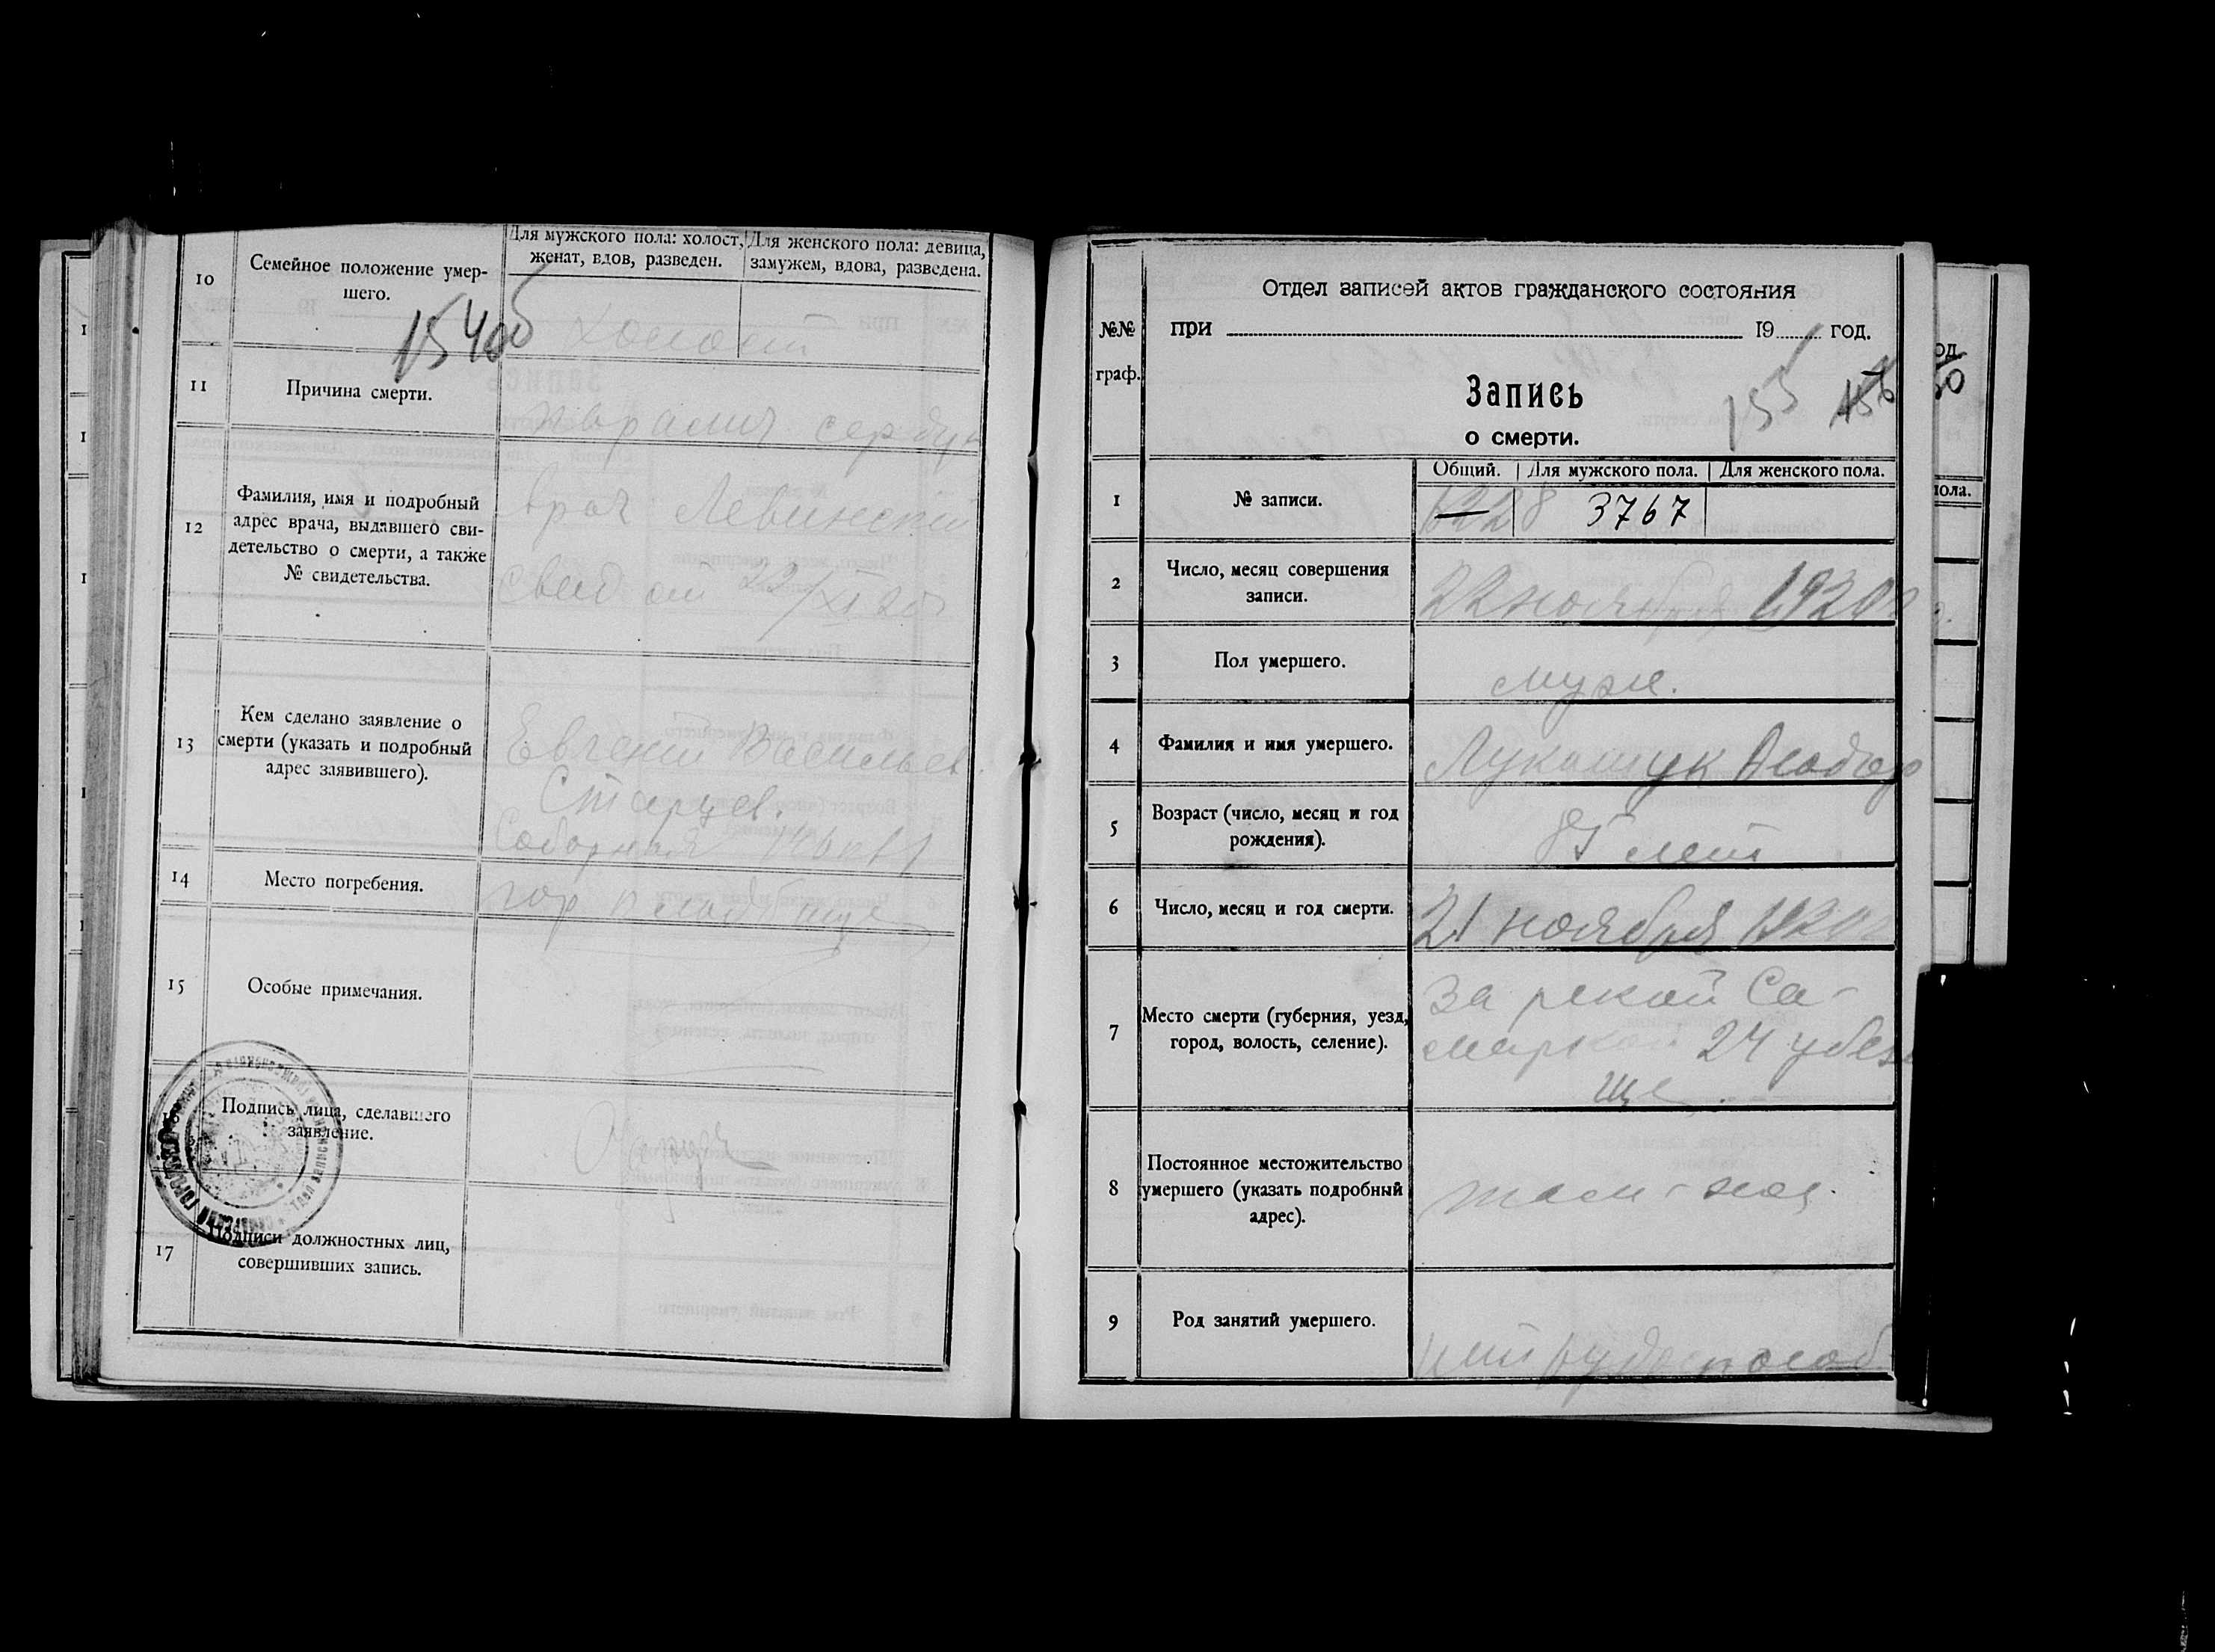 10
Семейное положение умер-
шего.
Для мужского пола: холост,
женат, вдов, разведен.
Для женского пола: девица,
замужем, вдова, разведена.
холост
154об
11
Причина смерти.
паралич сердца
12
Фамилия, имя и подробный
адрес врача, выдавшего сви-
детельство о смерти, а также
№ свидетельства.
врач Левинский
свид от 22/XI 20г
13
Кем сделано заявление о
смерти (указать и подробный
адрес заявившего).
Евгений Васильев.
Старцев.
Соборная
14
Место погребения.
гор кладбище
15
Особые примечания.
16
Подпись лица, сделавшего
заявление.
17
Подписи должностных лиц,
совершивших запись.
№№
граф.
Отдел записей актов гражданского состояния
при 19 год.
Запись
о смерти.
155
Общий. Для мужского пола. Для женского пола.
1
№ записи.
6228 3767
2
Число, месяц совершения
записи.
22 ноября 1920г
3
Пол умершего.
муж.
4
Фамилия и имя умершего.
Лукашук
5
Возраст (число, месяц и год
рождения).
85 лет
6
Число, месяц и год смерти.
21 ноября 1920г
7
Место смерти (губерния, уезд,
город, волость, селение).
За рекой Са-
маркой 24 убежи
ще.
8
Постоянное местожительство
умершего (указать подробный
адрес).
там-же
9
Род занятий умершего.
од.
пола.